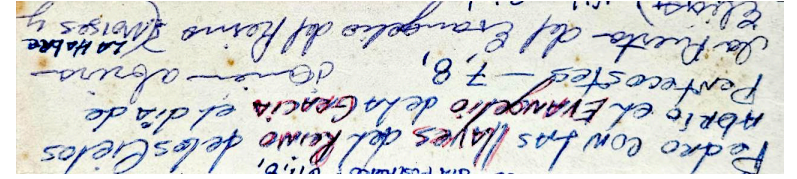 Pedro con las llaves del Reino de los Cielos
Abrio el Evangelio de la Gracia el dia de
Pentecostes — 7, 8, Quien abrira —
La Habre
La Puerta del Evangelio del Reino (Moises y
Elias)